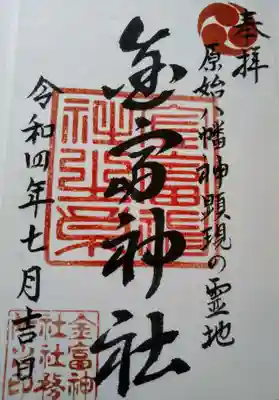 奉拝
原始八幡神顕現の霊地
金富神社
令和四年七月吉日
金富神
社社務
所印